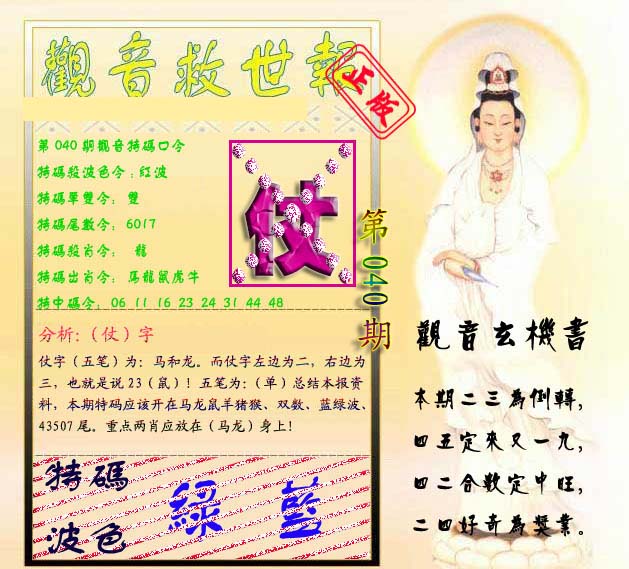 觀音救世報
正版
第040期觀音特碼口令
特碼殺波色令:紅波
特碼單雙令: 雙
特碼尾數令: 6017
特碼殺肖令: 龍
特碼出肖令: 馬龍鼠虎牛
特中碼令: 06 11 16 23 24 31 44 48
仗
第040期
分析:(仗)字
仗字（五笔）为：马和龙。而仗字左边为二，右边为
三，也就是说23（鼠）！五笔为：（单）总结本报资
料，本期特码应该开在马龙鼠羊猪猴、双数、蓝绿波、
43507尾。重点两肖应放在（马龙）身上！
特碼
波色
綠 藍
觀音玄機書
本期二三為倒轉,
四五定來又一九,
四二合數定中旺,
二四好奇為獎業。